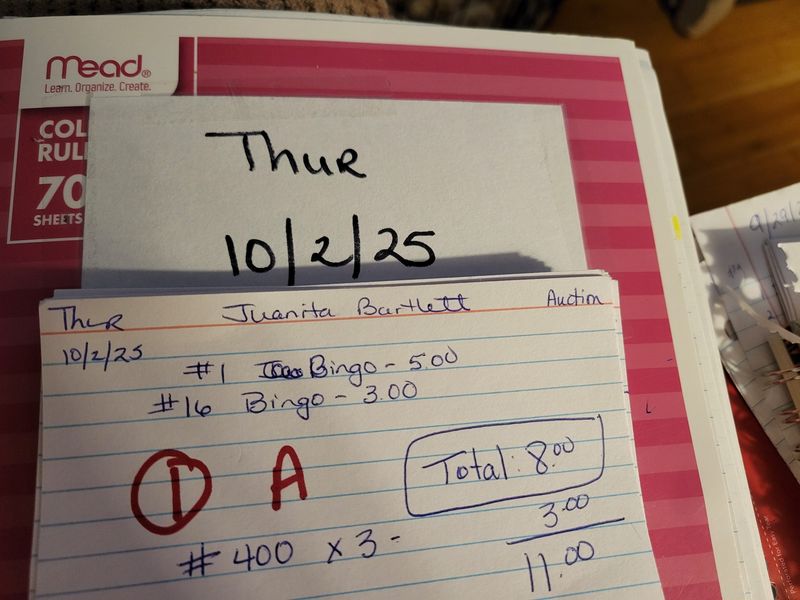 Mead®
Learn. Organize. Create.
COL
RUL
70
SHEETS
Thur
10/2/25
Thur Juanita Bartlett Auction
10/2/25
#1 Bingo - 5.00
#16 Bingo - 3.00
1 A
Total: 8.00
3.00
#400 x 3 -
11.00